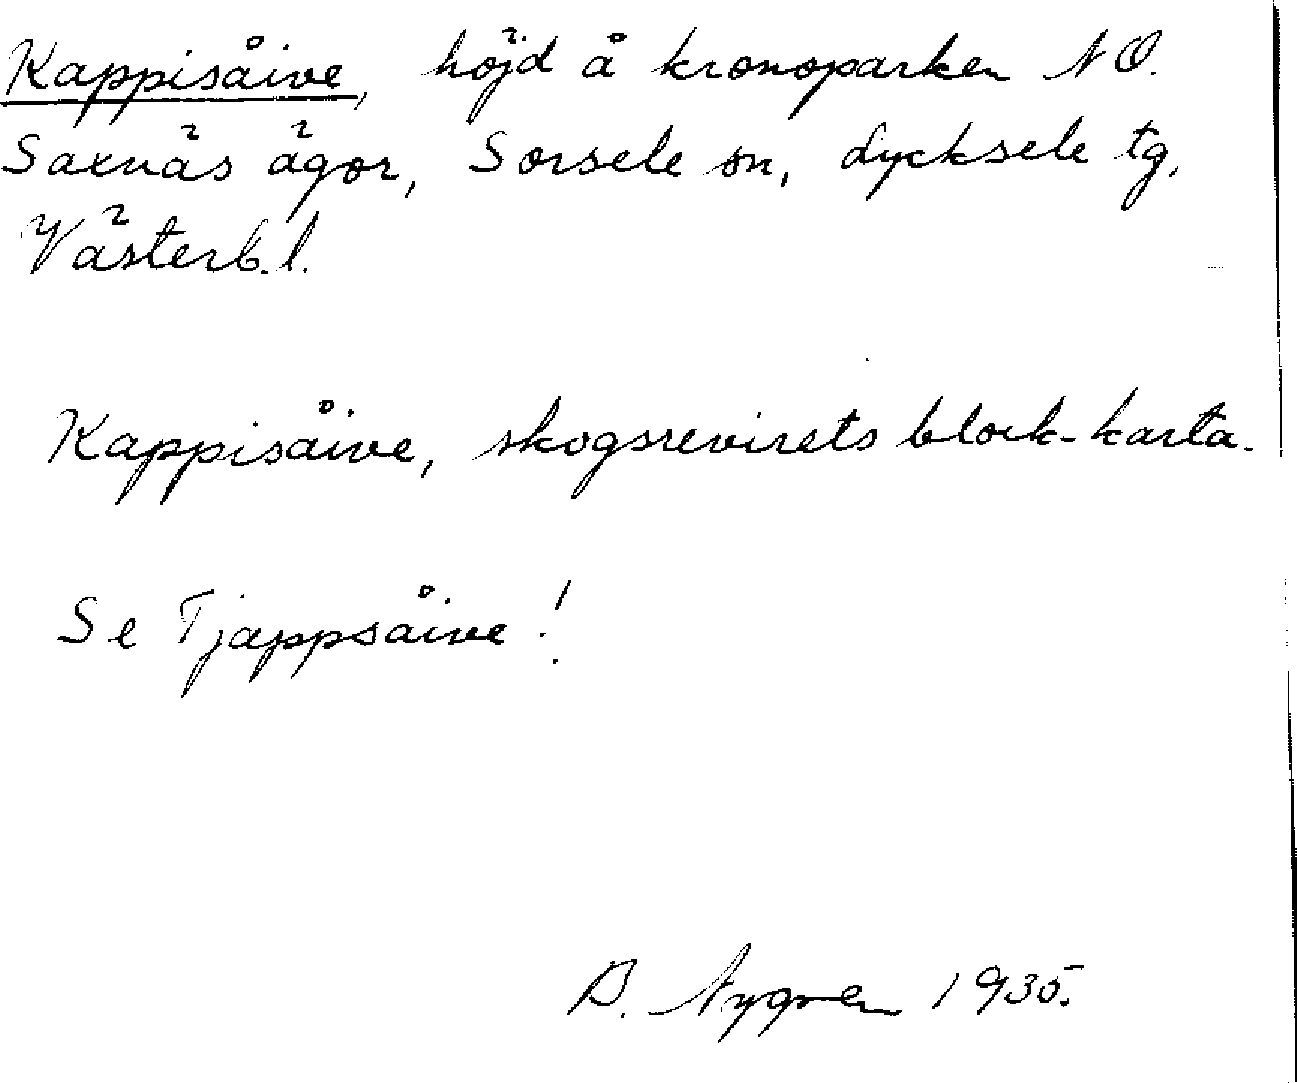 Kappisåive, höjd å kronoparken NO.
Saxnäs ägor, Sorsele sn, Lycksele tg,
Västerb.l.
Kappisåive, skogsrevirets block-karta.
Se Tjappsåive!
B. Nygren 1935.